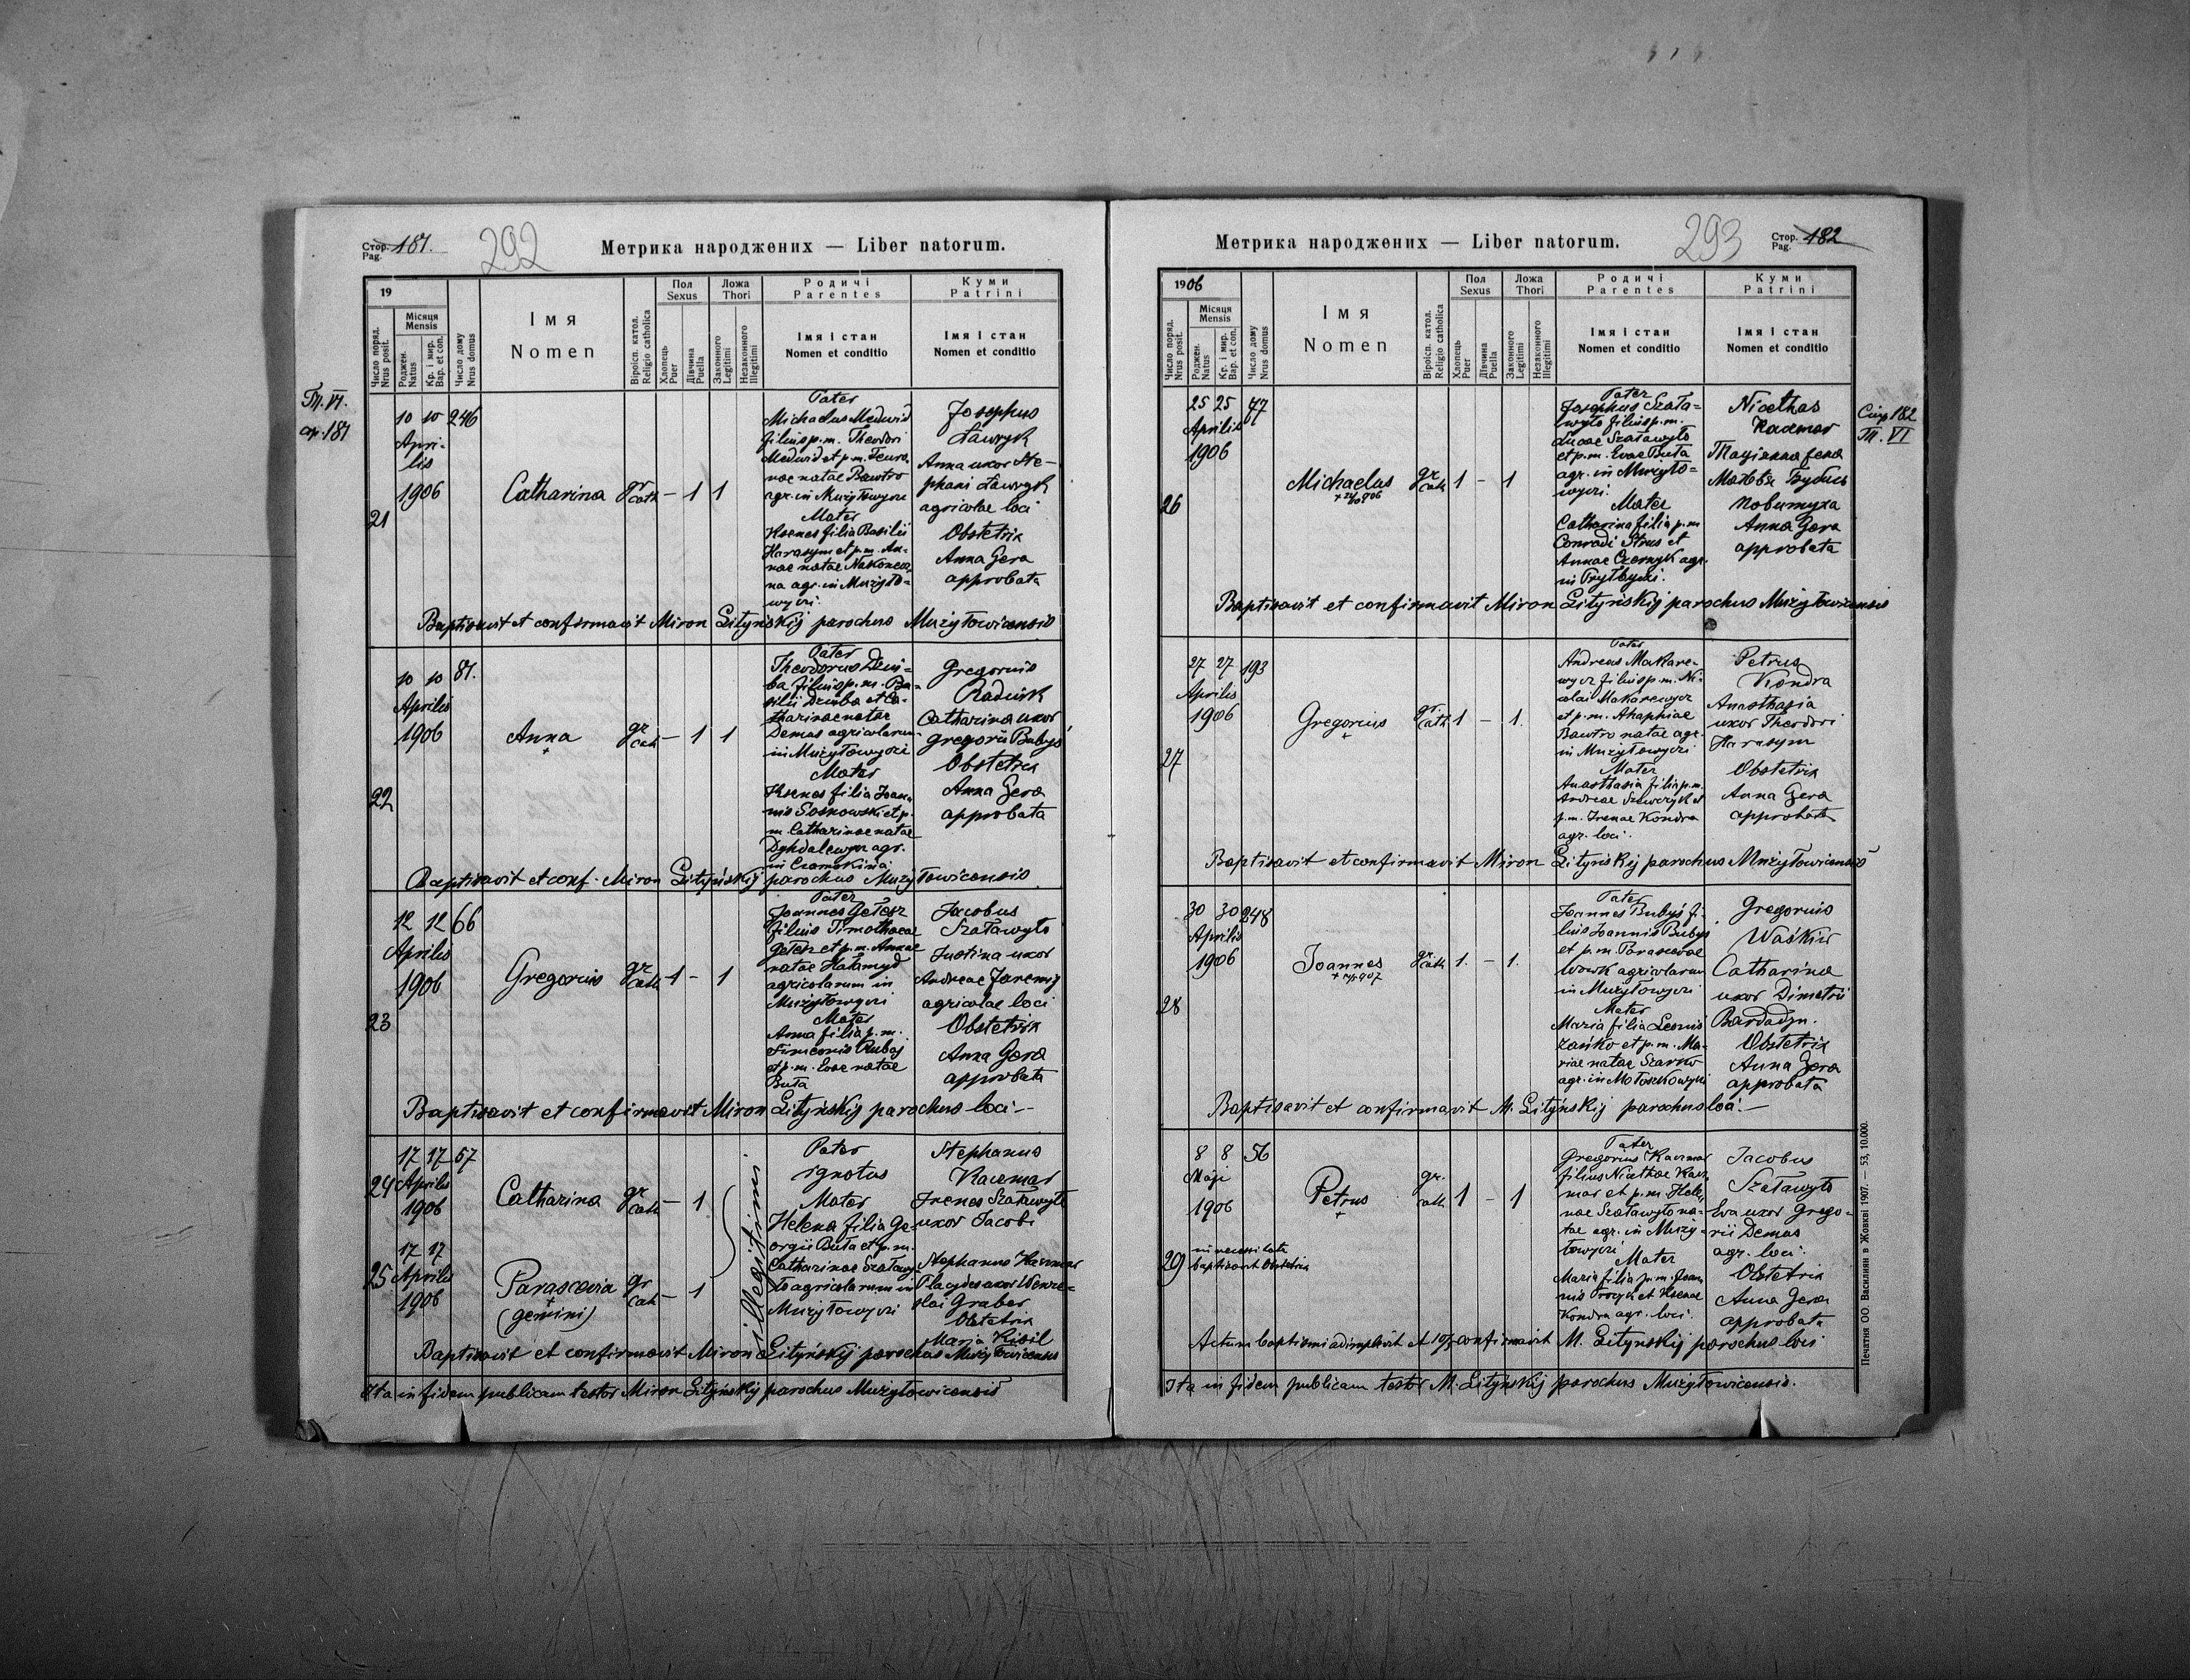 Стор. Pag. 181.
292
Метрика народжених — Liber natorum.
Тп. VI.
ар. 181
19
Число поряд. Nrus posit.
Місяця Mensis
Роджен. Natus
Кр. і мир. Bap. et con.
Число дому Nrus domus
Імя
Nomen
Віроісп. катол. Religio catholica
Пол Sexus
Хлопець Puer
Дївчина Puella
Ложа Thori
Законного Legitimi
Незаконного Illegitimi
Родичі
Parentes
Імя і стан
Nomen et conditio
Куми
Patrini
Імя і стан
Nomen et conditio
21
10 10 246
Apri-
lis
1906
Catharina
gr cath — 1 1
Pater
Michaelus Medwid
filius p.m. Theodori
Medwid et p.m. Teuro
nae natae Bawtro
agr. in Mużyłowyczi
Mater
Ksenes filia Basilii
Harasym et p.m. An-
nae natae Nakonecz
na agr. in Mużyło-
wyczi.
Josephus
Ławryk
Anna uxor Ste-
phani Ławryk
agricolae loci
Obstetrix
Anna Gera
approbata
Baptisavit et confirmavit Miron Lityńskij parochus Mużyłowicensis
22
10 10 81.
Aprilis
1906
Anna
+
gr cath — 1 1
Pater
Theodorus Dziu-
ba filius p.m. Ba-
silii Dziuba et Ca-
tharinae natae
Demas agricolarum
in Mużyłowyczi
Mater
Ksenes filia Joan-
nis Soskowski et p.
m. Catharinae natae
agr.
Gregorius
Radwisk
Catharina uxor
Gregorii Bubys
Obstetrix
Anna Gera
approbata
Baptisavit et conf. Miron Lityńskij parochus Mużyłowicensis
23
12 12 66
Aprilis
1906
Gregorius
gr cath 1 - 1
Pater
Joannes Gełesz
filius Timothaeae
Gełesz et p.m. Annae
natae Hałamyd
agricolarum in
Mużyłowyczi
Mater
Anna filia p.m.
Simeonis Rubaj
et p.m. Evae natae
Buta
Jacobus
Szaławyło
Justina uxor
Andreae Jaremij
agricolae loci
Obstetrix
Anna Gera
approbata
Baptisavit et confirmavit Miron Lityńskij parochus loci —
24
17 17 67
Aprilis
1906
Catharina
gr cath — 1
25
17 17
Aprilis
1906
Parascevia
+
(gemini)
gr cath — 1
illegitimi
Pater
ignotus
Mater
Helena filia Ge-
orgii Buta et p.m.
Catharinae Szaławy-
ło agricolarum in
Mużyłowyczi
Stephanus
Kaczmar
Irenes Szaławyło
uxor Jacobi
Stephanus Kaczmar
uxor Wence-
slai Graber
Obstetrix
Maria Kisil
Baptisavit et confirmavit Miron Lityńskij parochus Mużyłowicensis
Ita in fidem publicam testor Miron Lityńskij parochus Mużyłowicensis
Метрика народжених — Liber natorum.
293
Стор. Pag. 182
Стор 182
Тп. VI
1906
Число поряд. Nrus posit.
Місяця Mensis
Роджен. Natus
Кр. і мир. Bap. et con.
Число дому Nrus domus
Імя
Nomen
Віроісп. катол. Religio catholica
Пол Sexus
Хлопець Puer
Дївчина Puella
Ложа Thori
Законного Legitimi
Незаконного Illegitimi
Родичі
Parentes
Імя і стан
Nomen et conditio
Куми
Patrini
Імя і стан
Nomen et conditio
26
25 25 47
Aprilis
1906
Michaelus
gr cath 1 - 1
Pater
Josephus Szała-
wyło filius p.m.
Lucae Szaławyło
et p.m. Evae Buta
agr. in Mużyło-
wyczi.
Mater
Catharina filia p.m
Conradi Strus et
Annae Czernyk agr.
in Pryłbyczi.
Nicethas
Kaczmar
Маїянна жена
Матвѣя Бубиса
повитуха
Anna Gera
approbata
Baptisavit et confirmavit Miron Lityńskij parochus Mużyłowicensis
27
27 27 193
Aprilis
1906
Gregorius
+
gr. cath 1 - 1.
Pater
Andreas Makare-
wycz filius p.m. Ni-
colai Makarewycz
et p.m. Ahaphiae
Bawtro natae agr.
in Mużyłowyczi
Mater
Anasthasia filia p.m.
Andreae Szewczyk et
p.m. Irenae Kondra
agr. loci.
Petrus
Kondra
Anasthasia
uxor Theodori
Harasym
Obstetrix
Anna Gera
approbata
Baptisavit et confirmavit Miron Lityńskij parochus Mużyłowicensis
28
30 30 248
Aprilis
1906
Joannes
gr cath 1. - 1.
Pater
Joannes Bubyś fi-
lius Joannis Bubys
et p.m. Parascevae
Wowk agricolarum
in Mużyłowyczi
Mater
Maria filia Leonis
Zańko et p.m. Ma-
riae natae Szarko
agr. in Mołoszkowyczi
Gregorius
Waśkiw
Catharina
uxor Dimetrii
Bardadyn.
Obstetrix
Anna Gera
approbata
Baptisavit et confirmavit M. Lityńskij parochus loci. —
29
8 8 56
Maji
1906
in necessitate
baptisavit Obstetrix
Petrus
+
gr. cath 1 - 1
Pater
Gregorius Kaczmar
filius Nicethae Kacz-
mar et p.m. Hele-
nae Szaławyło na-
tae agr. in Muży-
łowyczi
Mater
Maria filia p.m. Joan
nis Procyk et Ksenae
Kondra agr. loci.
Jacobus
Szaławyło
Eva uxor Grego-
rii Demas
agr. loci.
Obstetrix
Anna Gera
approbata
Actum baptismi adimplevit et 10/5 confirmavit M. Lityńskij parochus loci
Ita in fidem publicam testor M. Lityńskij parochus Mużyłowicensis.
Печатня ОО. Василиян в Жовкві 1907. — 53, 10.000.